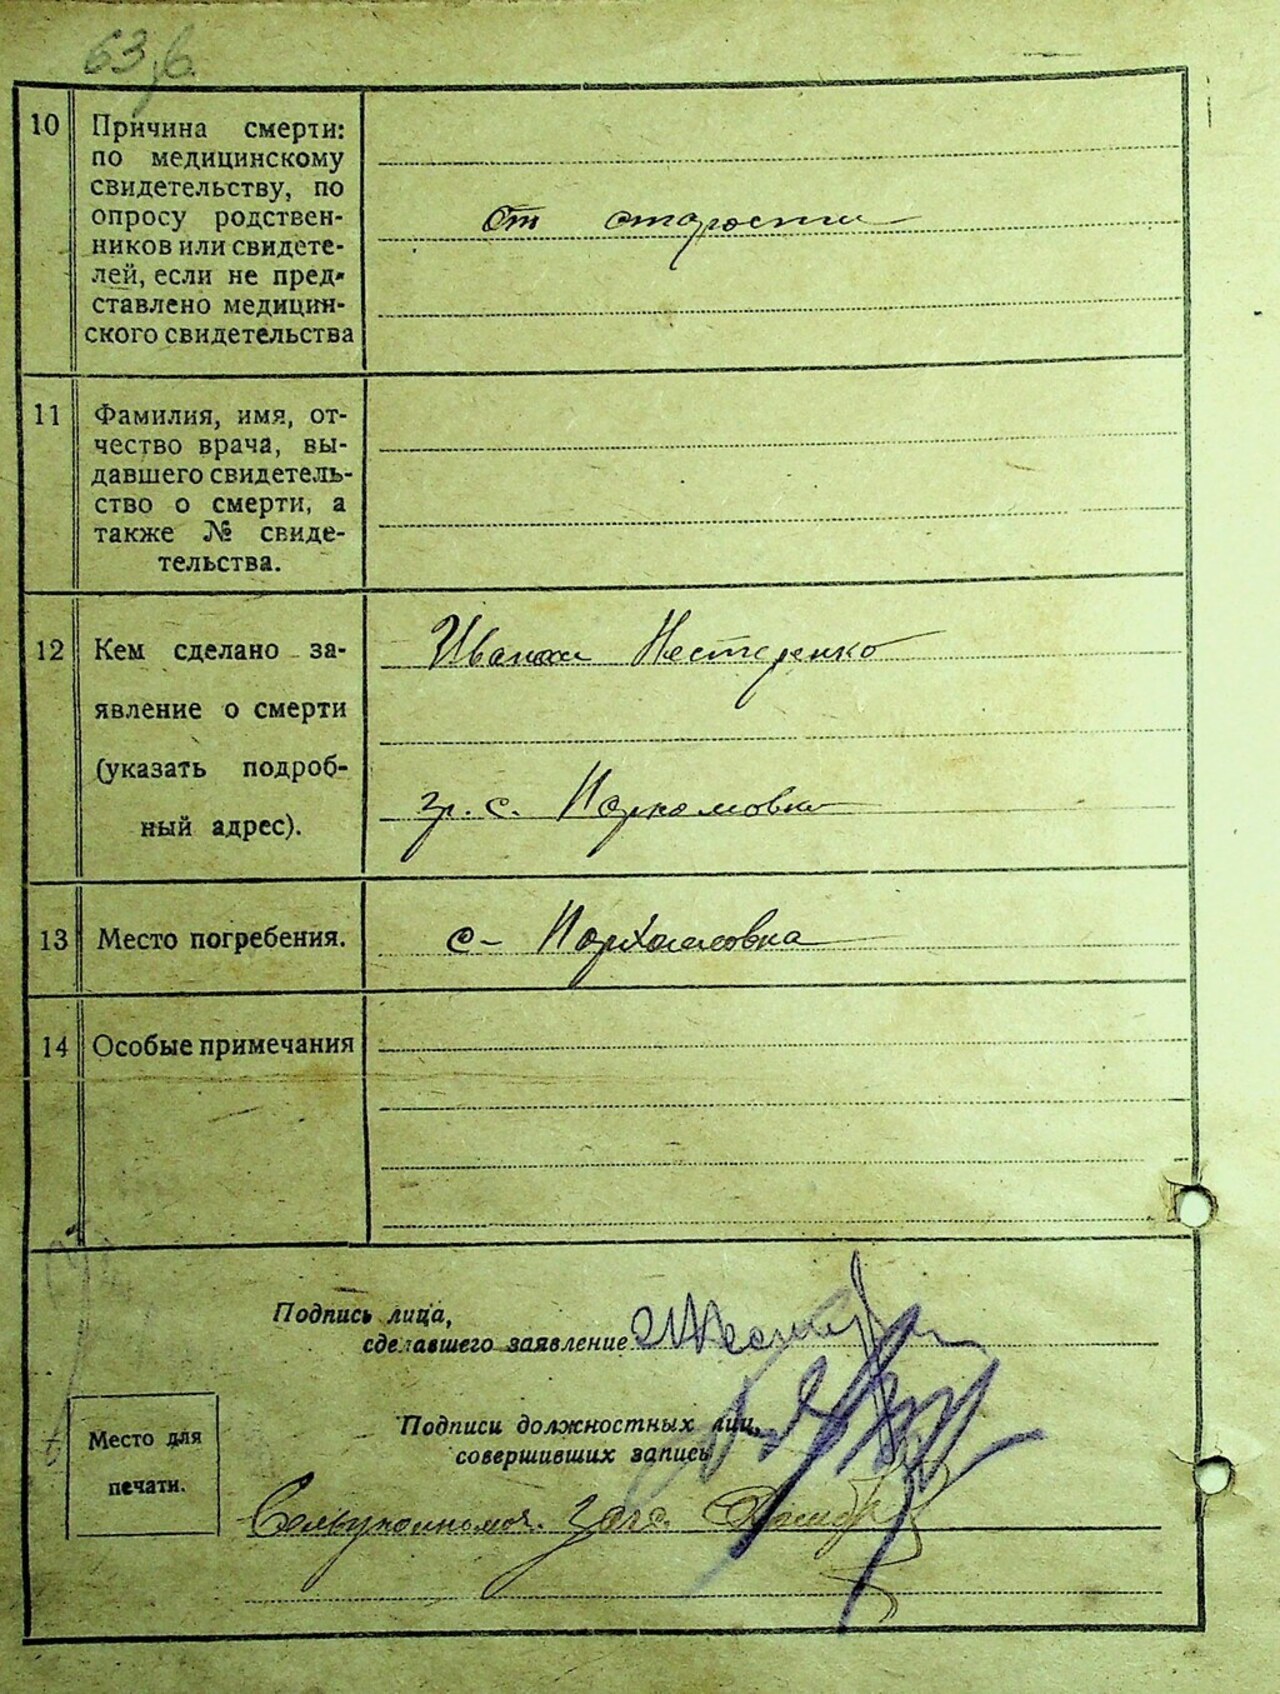 10 Причина смерти:
по медицинскому
свидетельству, по
опросу родствен-
ников или свидете-
лей, если не пред-
ставлено медицин-
ского свидетельства
от старости
11 Фамилия, имя, от-
чество врача, вы-
давшего свидетель-
ство о смерти, а
также № свиде-
тельства.
12 Кем сделано за-
явление о смерти
(указать подроб-
ный адрес).
Нестеренко
гр. с. Паркомовки
13 Место погребения.
с- Пархомовка
14 Особые примечания
Подпись лица,
сделавшего заявление
Подписи должностных лиц,
совершивших запись
Место для
печати.
загс.